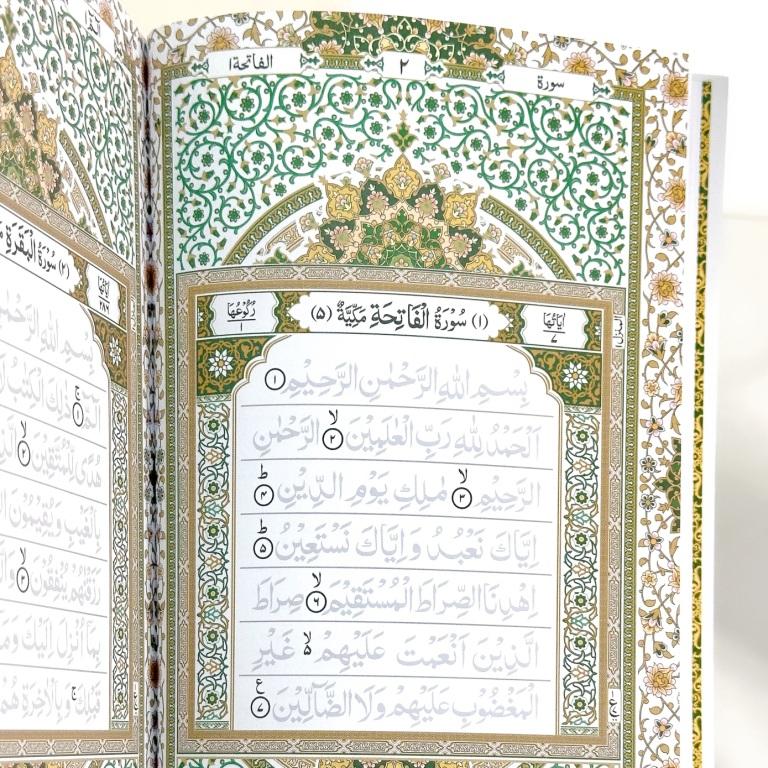 سورة ٢ الفاتحة ١
اٰيَاتُهَا ٧ (١) سُوْرَةُ الْفَاتِحَةِ مَكِّيَّةٌ (٥) رُكُوْعُهَا ١
بِسْمِ اللّٰهِ الرَّحْمٰنِ الرَّحِيْمِ ١
اَلْحَمْدُ لِلّٰهِ رَبِّ الْعٰلَمِيْنَ ۙ ٢ الرَّحْمٰنِ
الرَّحِيْمِ ۙ ٣ مٰلِكِ يَوْمِ الدِّيْنِ ؕ ٤
اِيَّاكَ نَعْبُدُ وَ اِيَّاكَ نَسْتَعِيْنُ ؕ ٥
اِهْدِنَا الصِّرَاطَ الْمُسْتَقِيْمَ ۙ ٦ صِرَاطَ
الَّذِيْنَ اَنْعَمْتَ عَلَيْهِمْ ۙ۵ غَيْرِ
الْمَغْضُوْبِ عَلَيْهِمْ وَلَا الضَّآلِّيْنَ ع ٧
(٢) سُوْرَةُ الْبَقَرَةِ اٰيَاتُهَا ٢٨٦
بِسْمِ اللّٰهِ الرَّحْمٰنِ
الٓمّٓ ۚ ١ ذٰلِكَ الْكِتٰبُ لَا
هُدًى لِّلْمُتَّقِيْنَ ۙ ٢
بِالْغَيْبِ وَ يُقِيْمُوْنَ
رَزَقْنٰهُمْ يُنْفِقُوْنَ ۙ ٣
بِمَاۤ اُنْزِلَ اِلَيْكَ وَمَاۤ
قَبْلِكَ ۚ وَ بِالْاٰخِرَةِ هُمْ